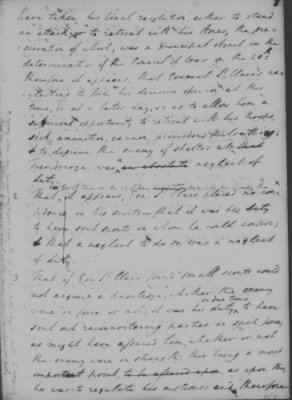 have taken, his final resolution, either to stand
an attack, or to retreat with his Stores, the pre-
servation of which, was a principal object in the
determination of the Council of War on the 20th
therefore it appears, that General St. Clair's neg-
lecting to give his decisive opinion at this
time, or at a later day, so as to allow him a
sufficient opportunity to retreat with his troops,
sick, ammunition, cannon, provisions
& to deprive the enemy of shelter at
Ticonderoga, was an absolute neglect of
duty.
2 That, it appears, Gen St. Clair placed no con-
fidence, on his scouts — that it was his duty
to have sent scouts in whom he could confide;
& that a neglect to do so, was a neglect
of duty.
3 That if Gen. St. Clair found small scouts could
not acquire a knowledge, whether the enemy
were in force or not; it was his duty, in due time, to have
sent out reconnoitering parties in such force,
as might have assured him, whether or not
the enemy were in strength; this being a most
important point, to be assured upon, as upon this,
he was to regulate his motions and, therefore